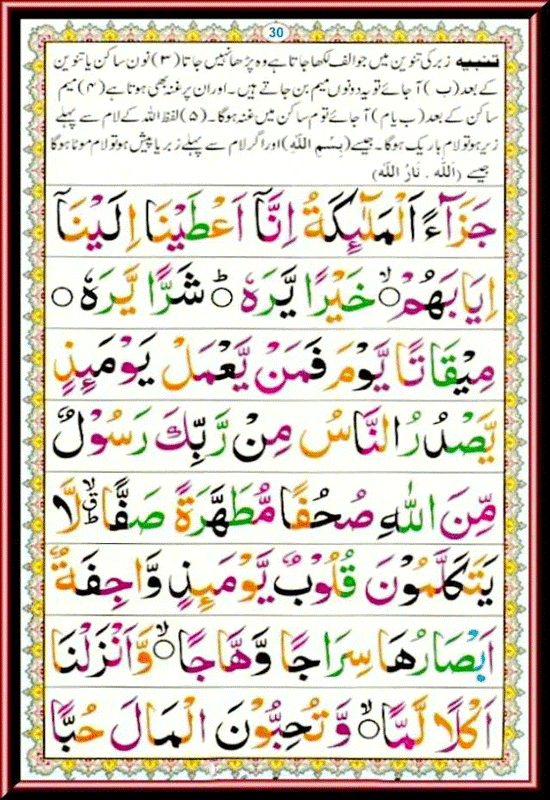 30
تنبیہ زبر کی تنوین میں جو الف لکھا جاتا ہے وہ پڑھا نہیں جاتا (۳) نون ساکن یا تنوین
کے بعد (ب) آجائے تو یہ دونوں میم بن جاتے ہیں۔ اور ان پر غنہ بھی ہوتا ہے (۴) میم
ساکن کے بعد (ب یا م) آجائے تو م ساکن میں غنہ ہوگا۔ (۵) لفظ اللہ کے لام سے پہلے
زیر ہو تو لام باریک ہوگا۔ جیسے (بِسْمِ اللّٰہِ) اور اگر لام سے پہلے زبر یا پیش ہو تو لام موٹا ہوگا
جیسے (اَللّٰہُ ۔ نَارُ اللّٰہِ)
جَزَآءً اَلْمَلٰٓئِكَةُ اِنَّاۤ اَعْطَيْنَا اِلَيْنَاۤ
اِيَابَهُمْ ۙ○ خَيْرًا يَّرَهٗ ؕ○ شَرًّا يَّرَهٗ ○
مِيْقَاتًا يَّوْمَ فَمَنْ يَّعْمَلْ يَوْمَئِذٍ
يَّصْدُرُ النَّاسُ مِنْ رَّبِّكَ رَسُوْلٌ
مِّنَ اللّٰهِ صُحُفًا مُّطَهَّرَةً صَفًّا ۙؕ لَّا
يَتَكَلَّمُوْنَ قُلُوْبٌ يَّوْمَئِذٍ وَّاجِفَةٌ
اَبْصَارُهَا سِرَاجًا وَّهَّاجًا ۙ○ وَّاَنْزَلْنَا
اَكْلًا لَّمًّا ۙ○ وَّتُحِبُّوْنَ الْمَالَ حُبًّا